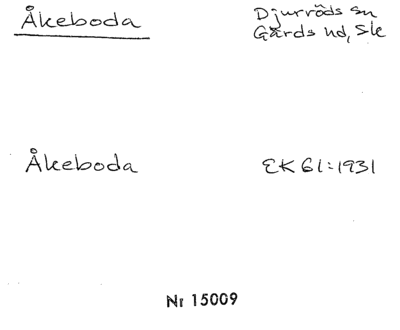 Åkeboda
Djurröds sn
Gärds hd, Sk
Åkeboda
EK 61:1931
Nr 15009